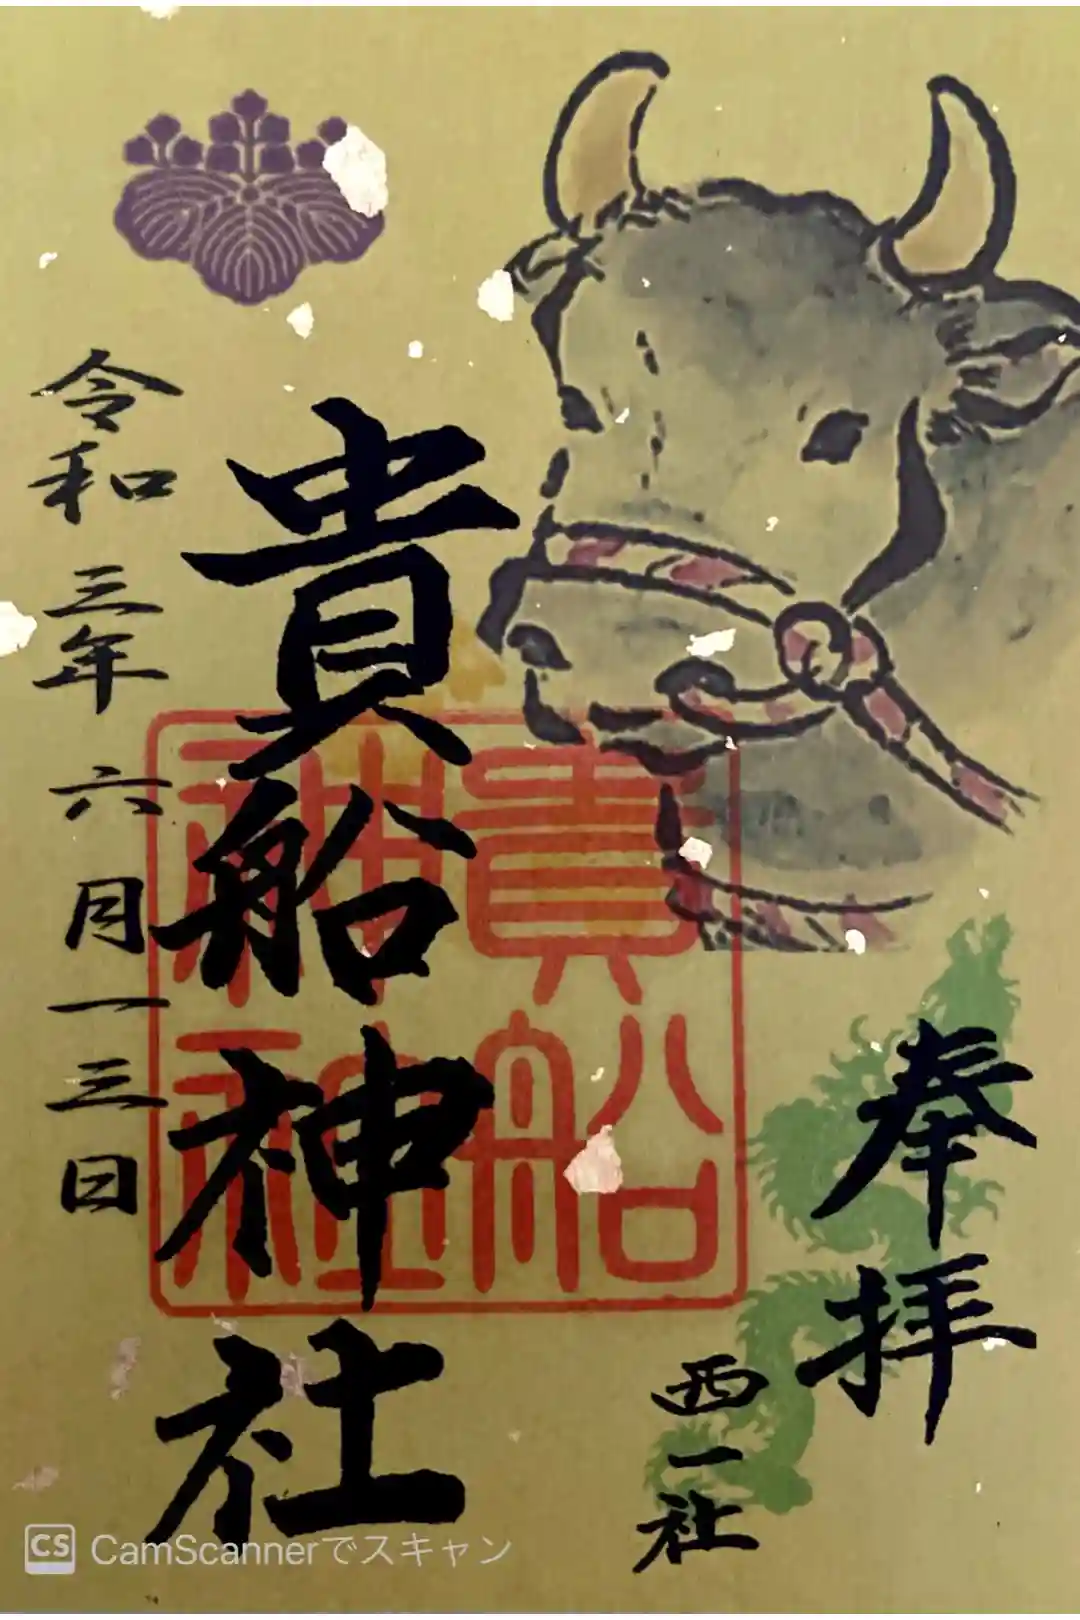 奉拝
西一社
貴船神社
貴船
神社
令和三年六月一三日
CS CamScannerでスキャン